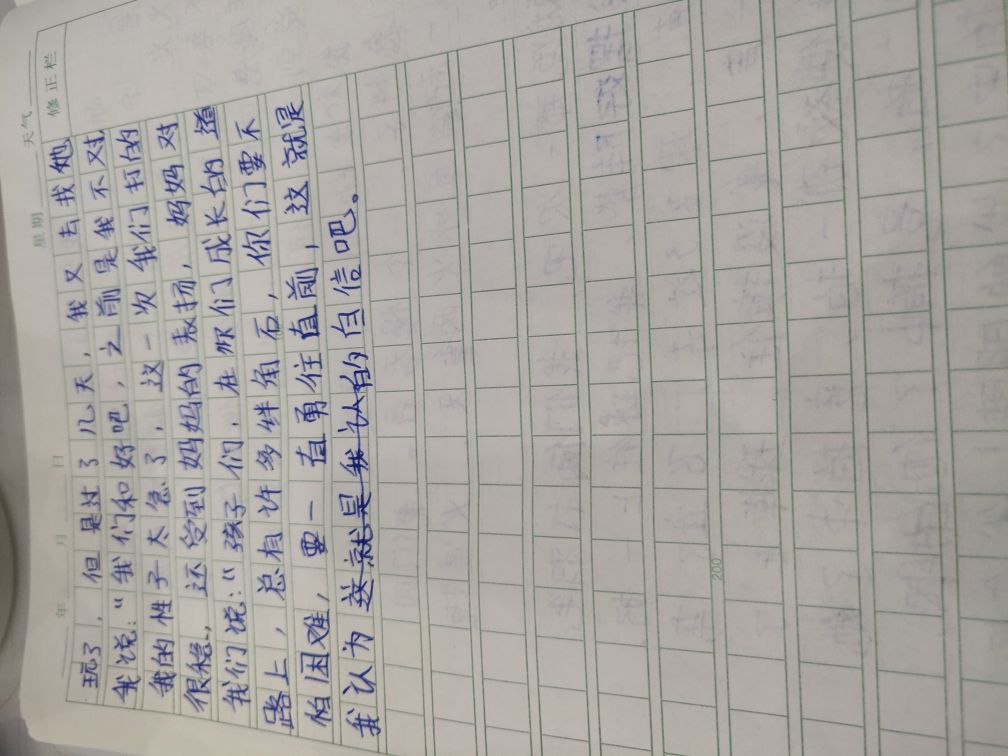 年 月 日 星期 天气
修正栏
玩了，但是过了几天，我又去找她
我说：“我们和好吧，之前是我不对
我的性子太急了，这一次我们打的
很稳，还受到妈妈的表扬，妈妈对
我们说：“孩子们，在你们成长的道
路上，总有许多绊角石，你们要不
怕困难，要一直勇往直前，这就是
我认为这就是我认的自信吧。
200